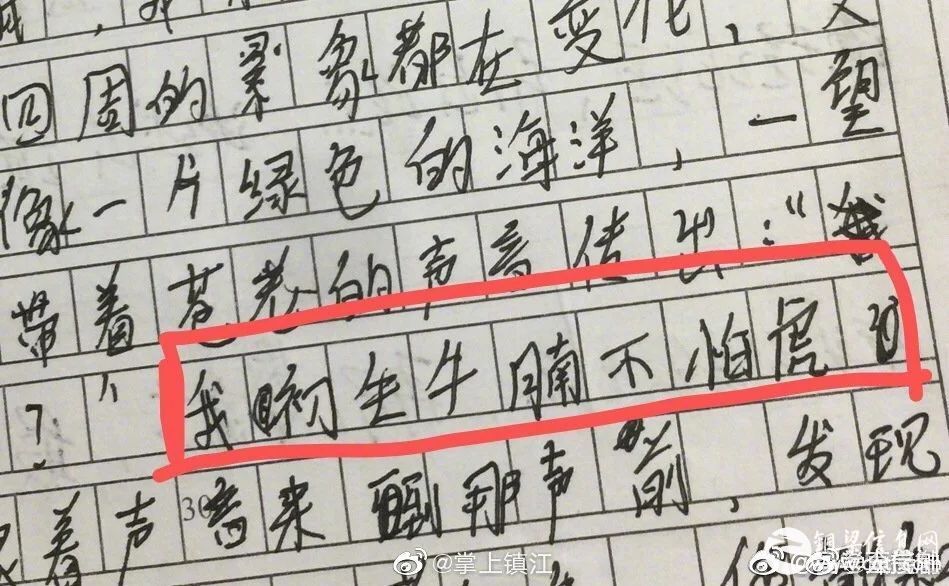 四周的景象都在变化，又
像一片绿色的海洋，一望
带着苍老的声音传出：“谁
？”我初生牛腩不怕虎的
着声音来到那声前，发现
30
@掌上镇江